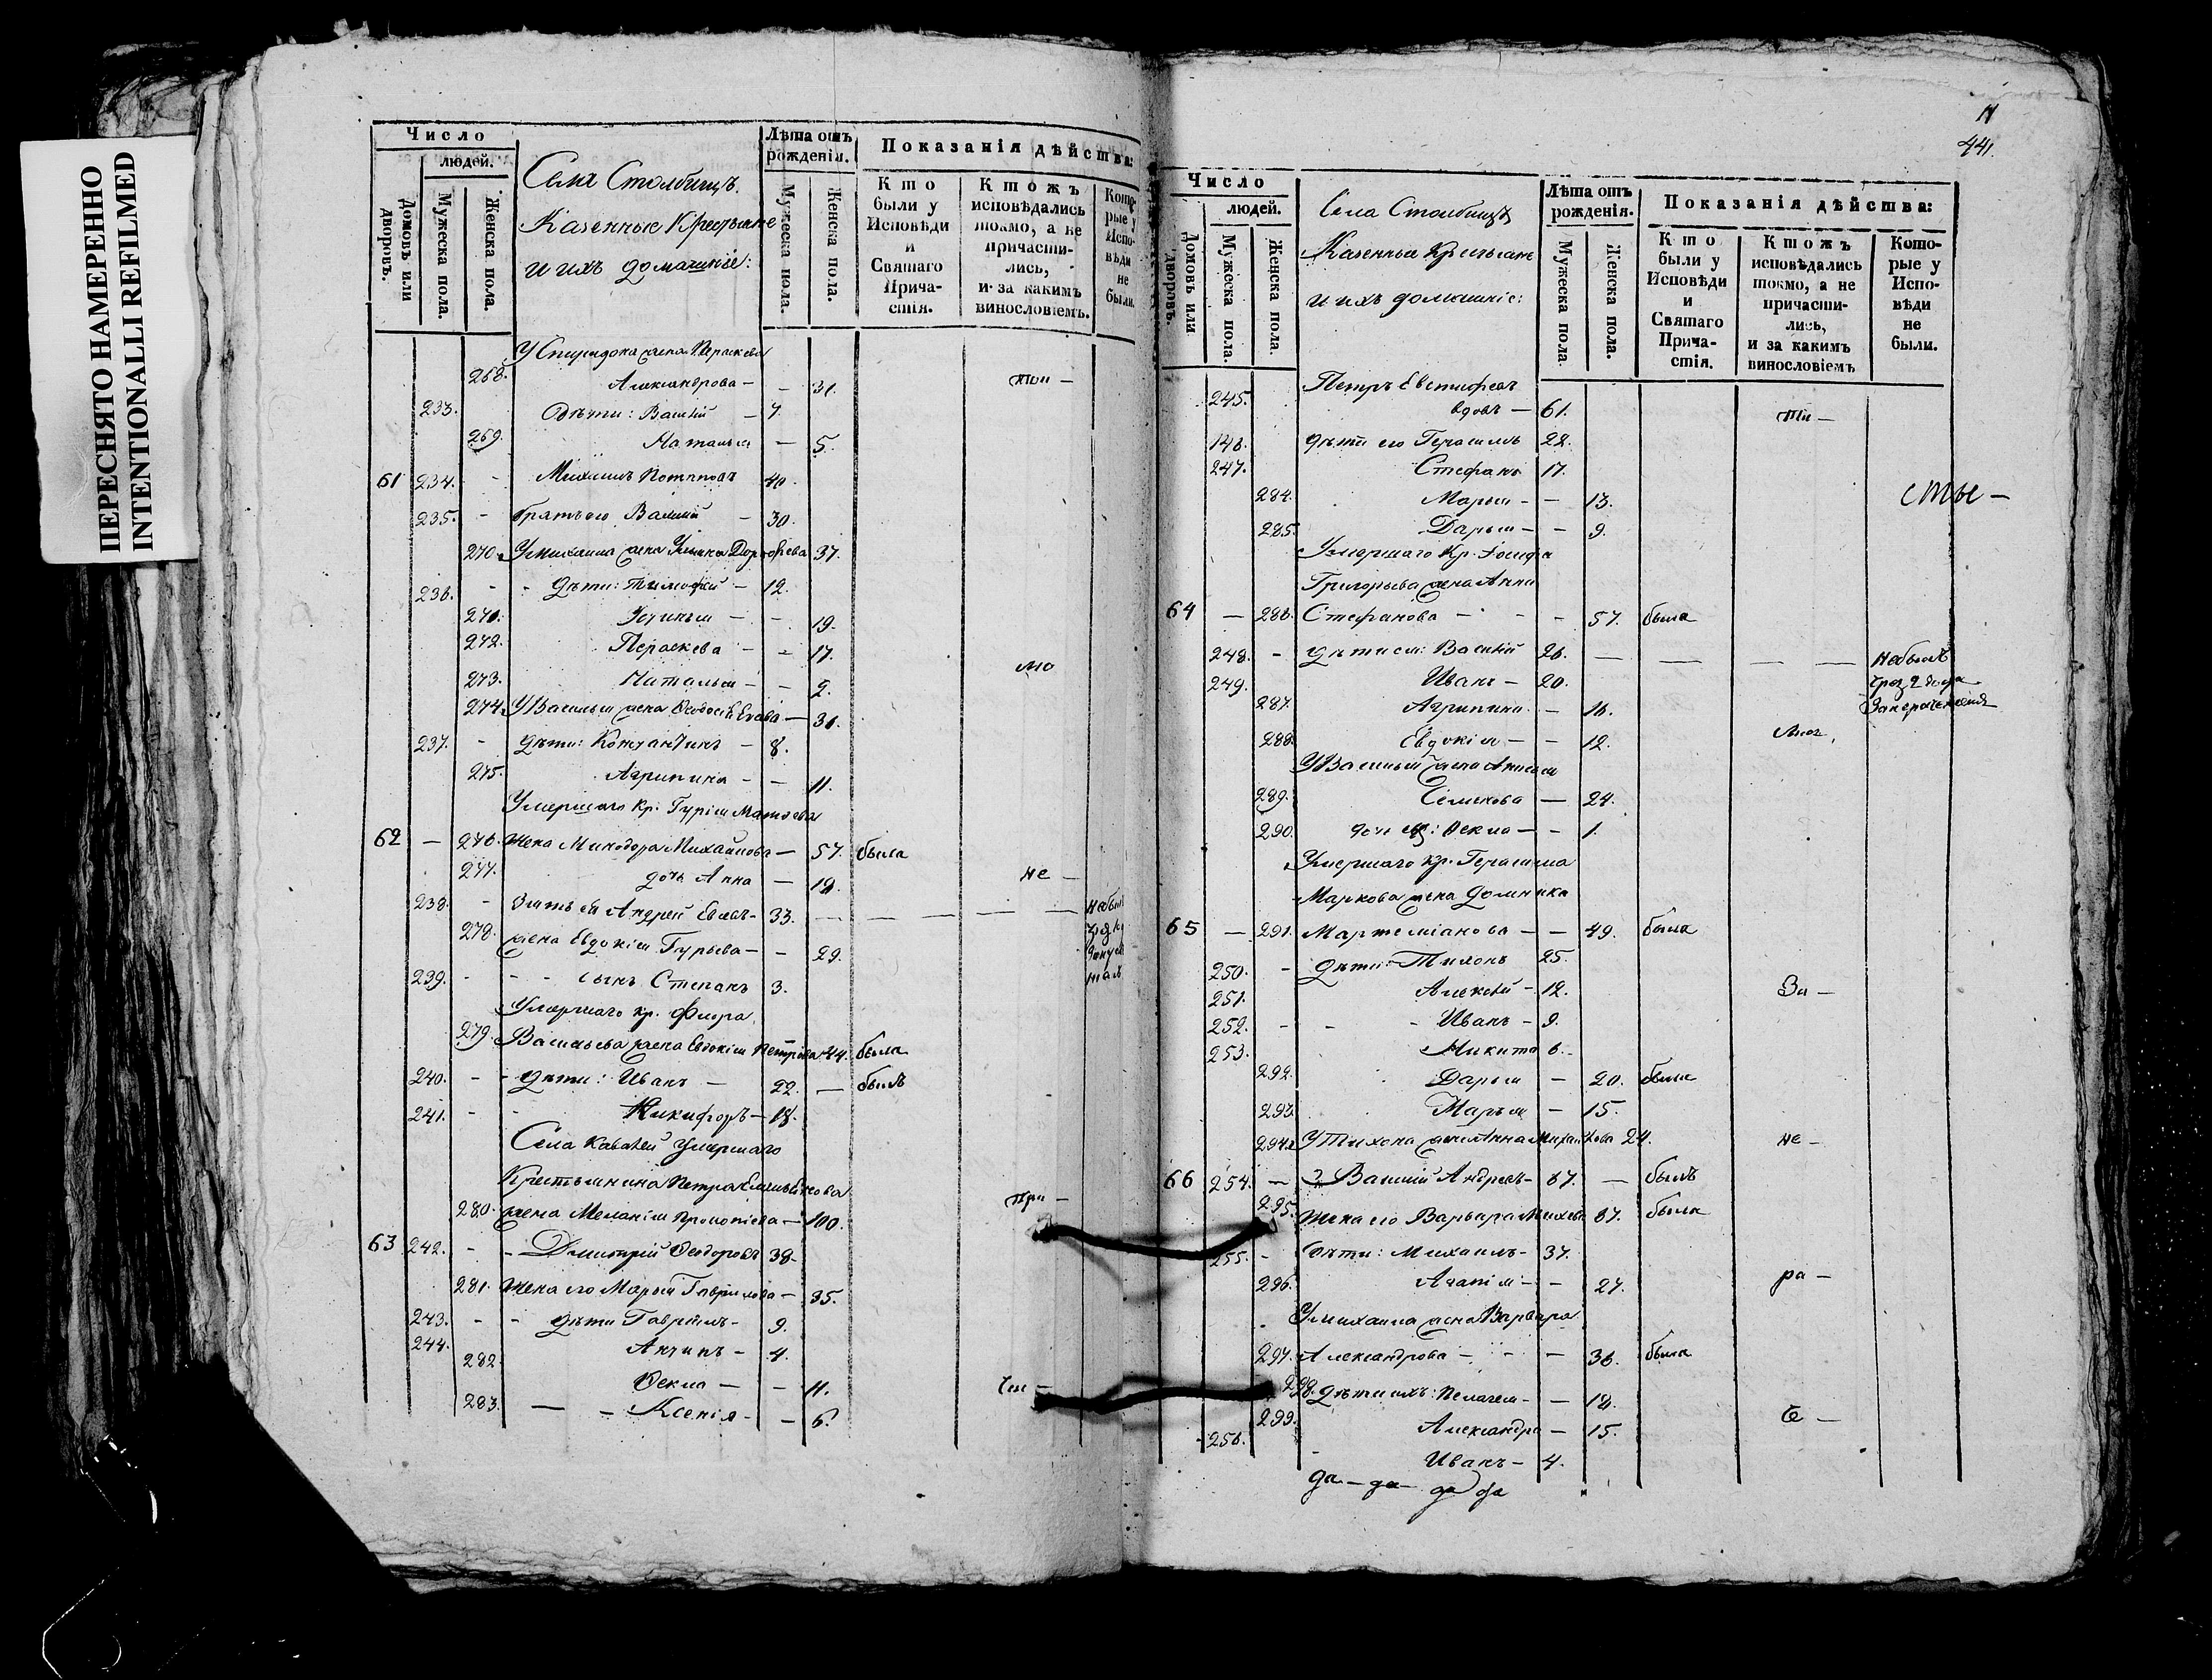 ПЕРЕСНЯТО НАМЕРЕННО
INTENTIONALLI REFILMED
Число
людей.
Домовъ или дворовъ.
Мужеска пола.
Женска пола.
Села Столбищъ
Казенные Крестьяне
и ихъ домашніе:
Лѣта отъ рожденія.
Мужеска пола.
Женска пола.
Показанія дѣйства:
Кто были у Исповѣди и Святаго Причастія.
Ктожъ исповѣдались токмо, а не причастились, и за какимъ винословіемъ.
Которые у Исповѣди не были.
У Спиридона жена Параскева
268. Александрова — — 31.
233. Дѣти: Василій — 7.
269. Наталья — 5.
61 234. - Михаилъ Потаповъ 40.
235. - братъ его Василій — 30.
270. У Михаила жена Ульяна Дорофѣева 37.
236. - - дѣти: Тимофей — 12.
271. Устинья — - 19.
272. Параскева — - 17.
мо
273. Наталья — - 2.
274. У Василья жена Ѳедосья — 31.
237. - дѣти: Константинъ — 8.
275. Агрипина — - 11.
Умершаго кр. Гурія Матвѣева
62 — 276. жена Минодора Михайлова — 57. была
277. дочь Анна — 19. не —
238. - Зять ея Андрей — 33. — — — — —
278. жена Евдокія Гурьева — - 29.
239. - - - сынъ Степанъ 3.
Умершаго кр. Флора
279. Васильева жена Евдокія Петрова 44. была
240. - - дѣти: Иванъ — 22. — былъ
241. - - Никифоръ — 18.
Села умершаго
Крестьянина Петра Емельянова
280. жена Меланія Прокопіева — 100. при —
63 242. - - Дмитрій Ѳеодоровъ 38.
281. жена его Марья Гаврилова — 35.
243. - - дѣти Гаврилъ — 9.
244. Антипъ — 4.
282. Ѳекла — - 11.
283. — - Ксенія — - 6.
441.
Число
людей.
Домовъ или дворовъ.
Мужеска пола.
Женска пола.
Села Столбищъ
Казенные Крестьяне
и ихъ домашніе:
Лѣта отъ рожденія.
Мужеска пола.
Женска пола.
Показанія дѣйства:
Кто были у Исповѣди и Святаго Причастія.
Ктожъ исповѣдались токмо, а не причастились, и за какимъ винословіемъ
Которые у Исповѣди не были.
245. Петръ Евстифеевъ
вдовъ — 61.
146. дѣти его Герасимъ 22.
247. Стефанъ 17.
284. Марья — - 13.
сты —
285. Дарья — - 9.
Умершаго кр. Іосифа
Григорьева жена Анна
64 — 286. Стефанова — - - 57. была
248. - дѣти ея: Василій 26. — — — — небылъ
249. Иванъ — 20.
287. Агрипина — 16.
288. Евдокія — - 12.
У Василья жена
289. Семенова — 24.
290. дочь ихъ: Ѳекла — - 1.
Умершаго кр. Герасима
Маркова жена Домника
65 — 291. Мартеміанова — - 49. была
250. - дѣти: Тихонъ 25.
251. Алексѣй — 12. За —
252. - - - Иванъ — 9.
253. Никита 6.
292. Дарья — 20. была
293. Марья — 15.
294. У Тихона жена Анна Михайлова 24. не —
66 254. — Василій Андреевъ — 67. — былъ
295. жена его Варвара 67. была
255. - Дѣти: Михаилъ — 37.
296. Агапія — - 27. ра —
У Михаила жена Варвара
297. Александрова — - - 36. была
298. дѣти ихъ: Пелагея — - 18.
299. Александра — 15.
256. Иванъ — 4.
да — да — да да